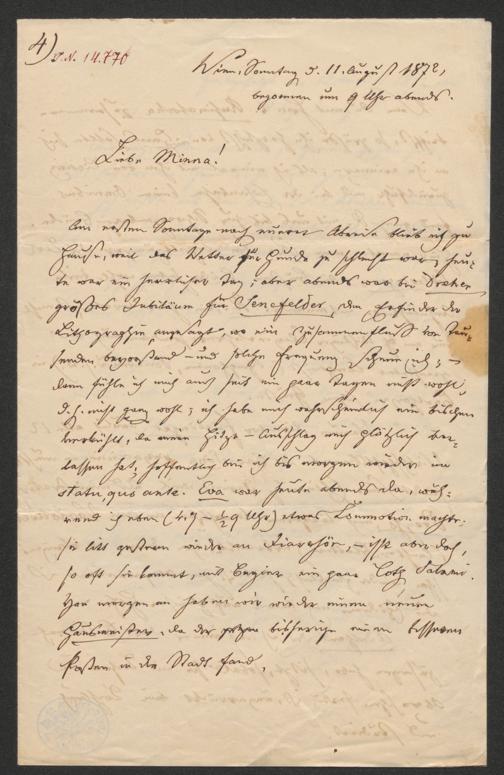 4)
I.N. 14.770
Wien, Sonntag d. 11. August 1872,
begonnen um 9 Uhr abends.
Liebe Minna!
Am ersten Sonntage nach eurer Abreise blieb ich zu
Hause, weil das Wetter für Hunde zu schlecht war; heu-
te war ein herrlicher Tag; aber abends war bei Dreher
großes Jubiläum für Senefelder, den Erfinder der
Lithographie angesagt, wo ein Zusammenfluß von Tau-
senden bevorstand – und solche scheue ich; –
dann fühle ich mich auch seit ein paar Tagen nicht wohl,
d.h. nicht ganz wohl; ich habe mich wahrscheinlich ein bischen
verkühlt, da mein Hitze-Ausschlag mich plötzlich ver-
lassen hat; hoffentlich bin ich bis morgen wieder im
statu, quo ante. Eva war heute abends da, wäh-
rend ich eben (4.7 – ½9 Uhr) etwas Lokomotion machte:
sie litt gestern wieder an Diarrhöe, – ißt aber doch,
so oft sie kommt, mit Begier ein paar Loth Salami.
Von morgen an haben wir wieder einen neuen
Hausmeister, da der bisherige einen besseren
Posten in der Stadt fand.